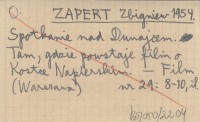 O. ZAPERT Zbigniew 1954.
Spotkanie nad Dunajcem.
Tam, gdzie powstaje film o
Kostce Napierskim. — Film
(Warszawa) nr 29: 8-10, il